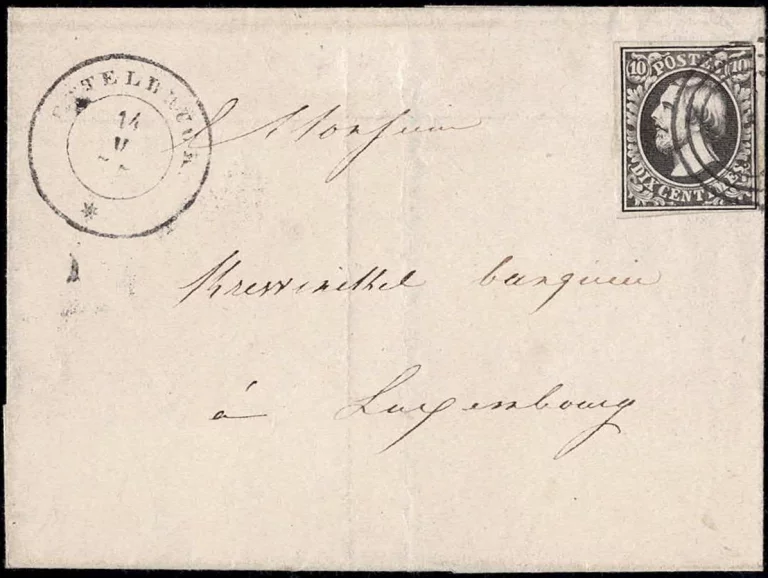 ETTELBRUCK.
14
10 POSTES 10
DIX CENTIMES
Monsieur
banquier
à Luxembourg